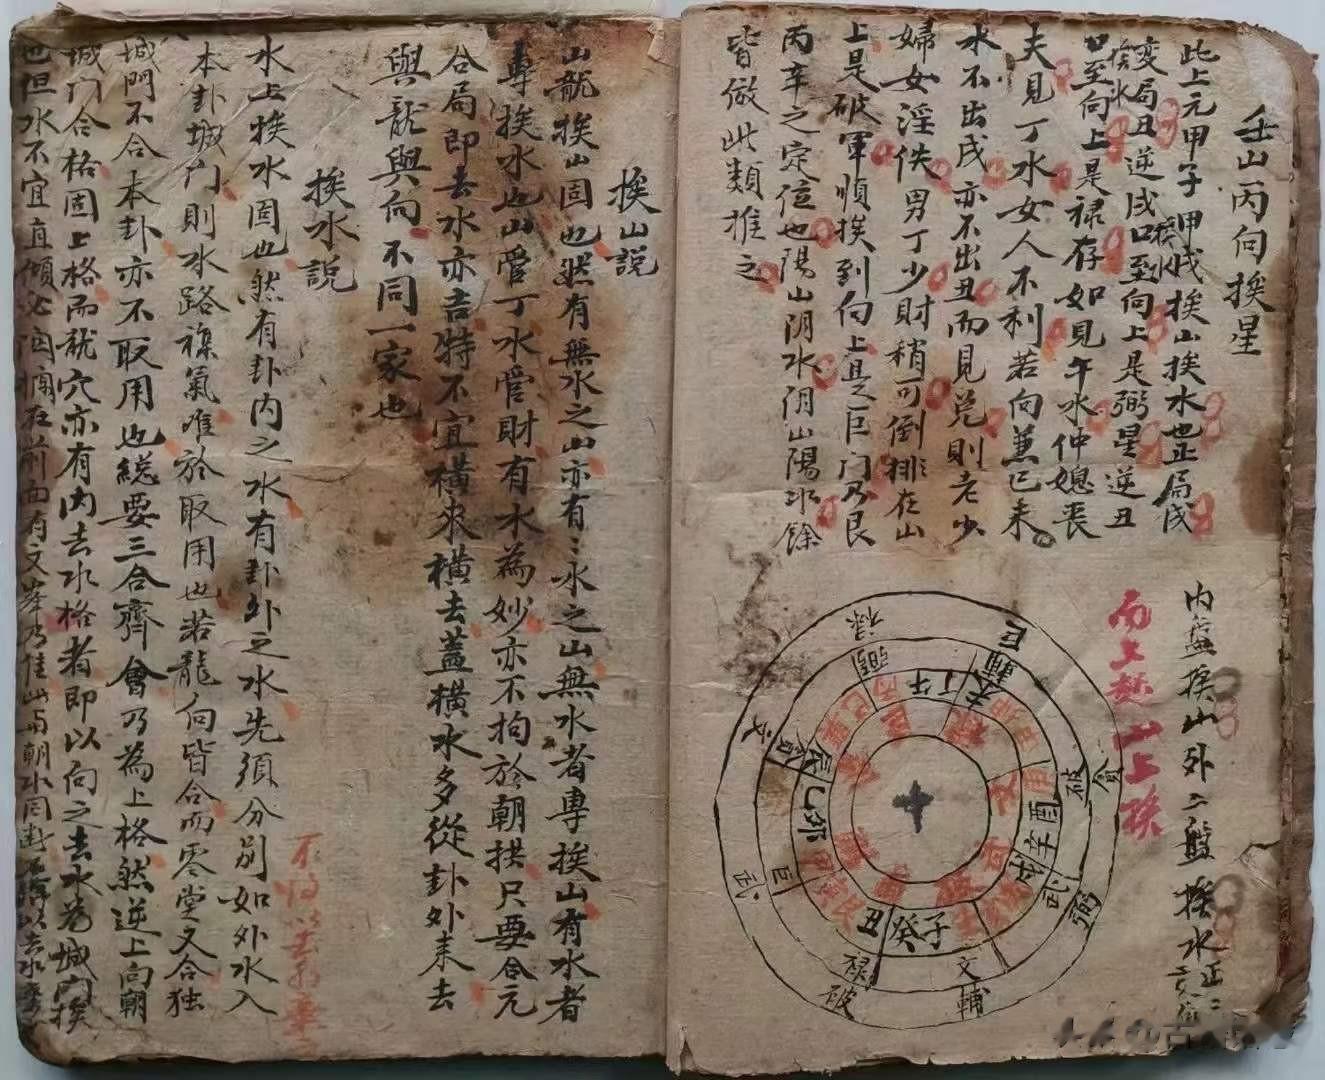 壬山丙向挨星
此上元甲子甲戌挨山挨水也正局戌
变局丑逆戌口至向上是弼星逆丑
挨水
挨水
口至向上是禄存如見午水仲媳丧
夫見丁水女人不利若向兼巳未
水不出戌亦不出丑而見兑則老少
婦女淫佚男丁少財稍可倒排在山
上是破軍順挨到向上是巨门乃艮
丙辛之定位也陽山阴水阴山陽水餘
皆倣此類推之
内盤挨山外二盤挨水
向上起山上挨
禄
弼
巨
輔
丙
午
丁
未
破
貪
酉
辛
戌
武
弼
子
癸
丑
文
輔
禄
破
卯
乙
辰
巨
武
貪
文
挨山説
山龍挨山固也然有無水之山亦有二水之山無水者專挨山有水者
專挨水也山管丁水管財有水為妙亦不拘於朝拱只要合元
合局即去水亦吉特不宜橫來橫去蓋橫水多從卦外来去
與龍與向不同一家也
挨水説
水上挨水固也然有卦内之水有卦外之水先須分別如外水入
本卦城门則水路襍氣唯於取用也若龍向皆合而零堂又合独
城門不合本卦亦不取用也総要三合齊會乃為上格然逆上向朝
城门合格固上格而龍穴亦有内去水格者即以向之去水為城门挨
也但水不宜直傾必因橫在前面有文峯乃佳此与朝水同断